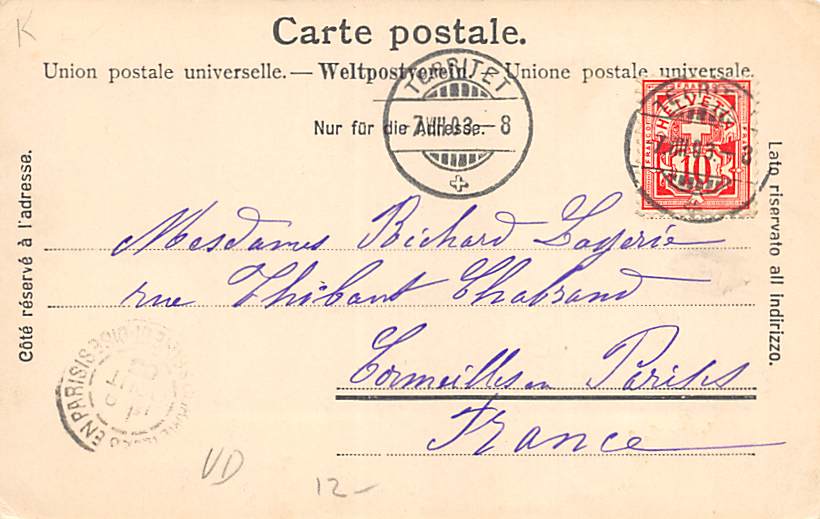 K
Carte postale.
Union postale universelle. — Weltpostverein. Unione postale universale.
Nur für die Adresse.
TERRITET
7.VIII.03 – 8
HELVETIA
FRANCO
10
7.VIII.03 – 8
Côté réservé à l'adresse.
Lato riservato all indirizzo.
Mesdames Richard Lagerie
rue Thibaut Chabrand
Cormeilles en Parisis
France
EN PARISIS
SEINE-ET-OISE
VD
12-